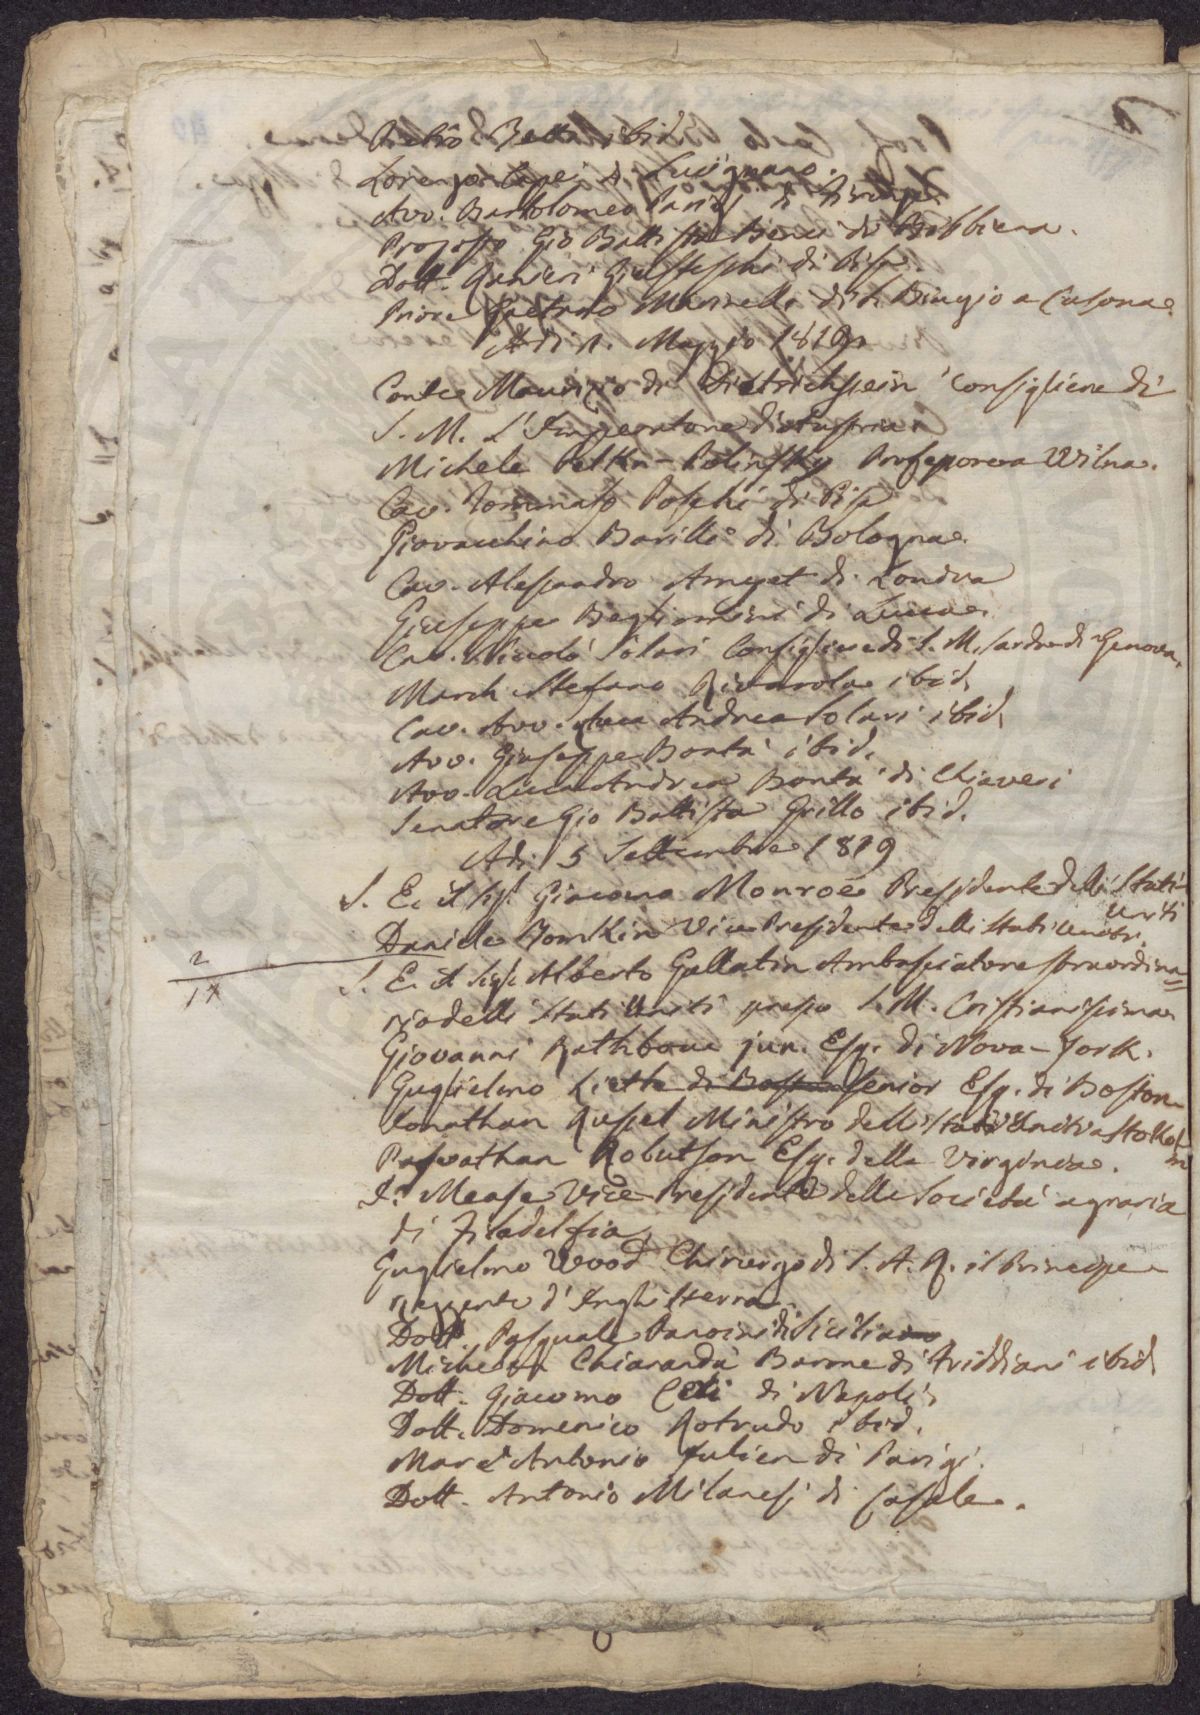 Pietro Betti ibid.
Lorenzo Capei di Lucignano.
Avv. Bartolomeo Parigi di Firenze
Proposto Gio Battista Bonci di Bibbiena.
Dott. Ranieri Giusteschi di Pisa.
Priore Gaetano Marinelli di S. Biagio a Casona.
Adi Maggio 1819
Conte Maurizio di Dietrichstein Consigliere di
S. M. L'Imperatore d'Austria.
Michele Pelka-Polinsky Professore a Wilna.
Cav. Tommaso Poschi di Pisa
Giovacchino Barilli di Bologna.
Cav. Alessandro Amyet di Londra
Giuseppe Begliomini di Lucca.
Cav. Niccolò Solari Consigliere di S. M. Sarda di Genova.
March. Stefano Rivarola ibid.
Cav. Avv. Luca Andrea Solari ibid.
Avv. Giuseppe Bontà ibid.
Avv. Luca Andrea Bontà di Chiaveri
Senatore Gio Battista Grillo ibid.
Adi 5 Settembre 1819
S. E. il Sigr. Giacomo Monroe Presidente delli Stati
Uniti
Daniele Tomkin Vice Presidente delli Stati Uniti.
2
17
S. E. il Sigr. Alberto Gallatin Ambasciatore straordina=
rio delli Stati Uniti presso S. M. Cristianissima
Giovanni Rathbone jun. Esq. di Nova-York.
Guglielmo di Boston Senior Esq. di Boston
Jonathan Russel Ministro delli Stati Uniti a Stokol
m
Robutson Esq. della Virginia.
J. Mease Vice Presidente della Società agraria
di Filadelfia
Guglielmo Wood Chirurgo di S. A. R. il Principe
reggente d'Inghilterra
Dott. Pasquale Panvini di Sicilia
Michele Chiarandà Barone di Friddiani ibid
Dott. Giacomo di Napoli
Dott. Domenico Rotrudo ibid.
Marc'Antonio Julien di Parigi.
Dott. Antonio Milanesi di Casale.